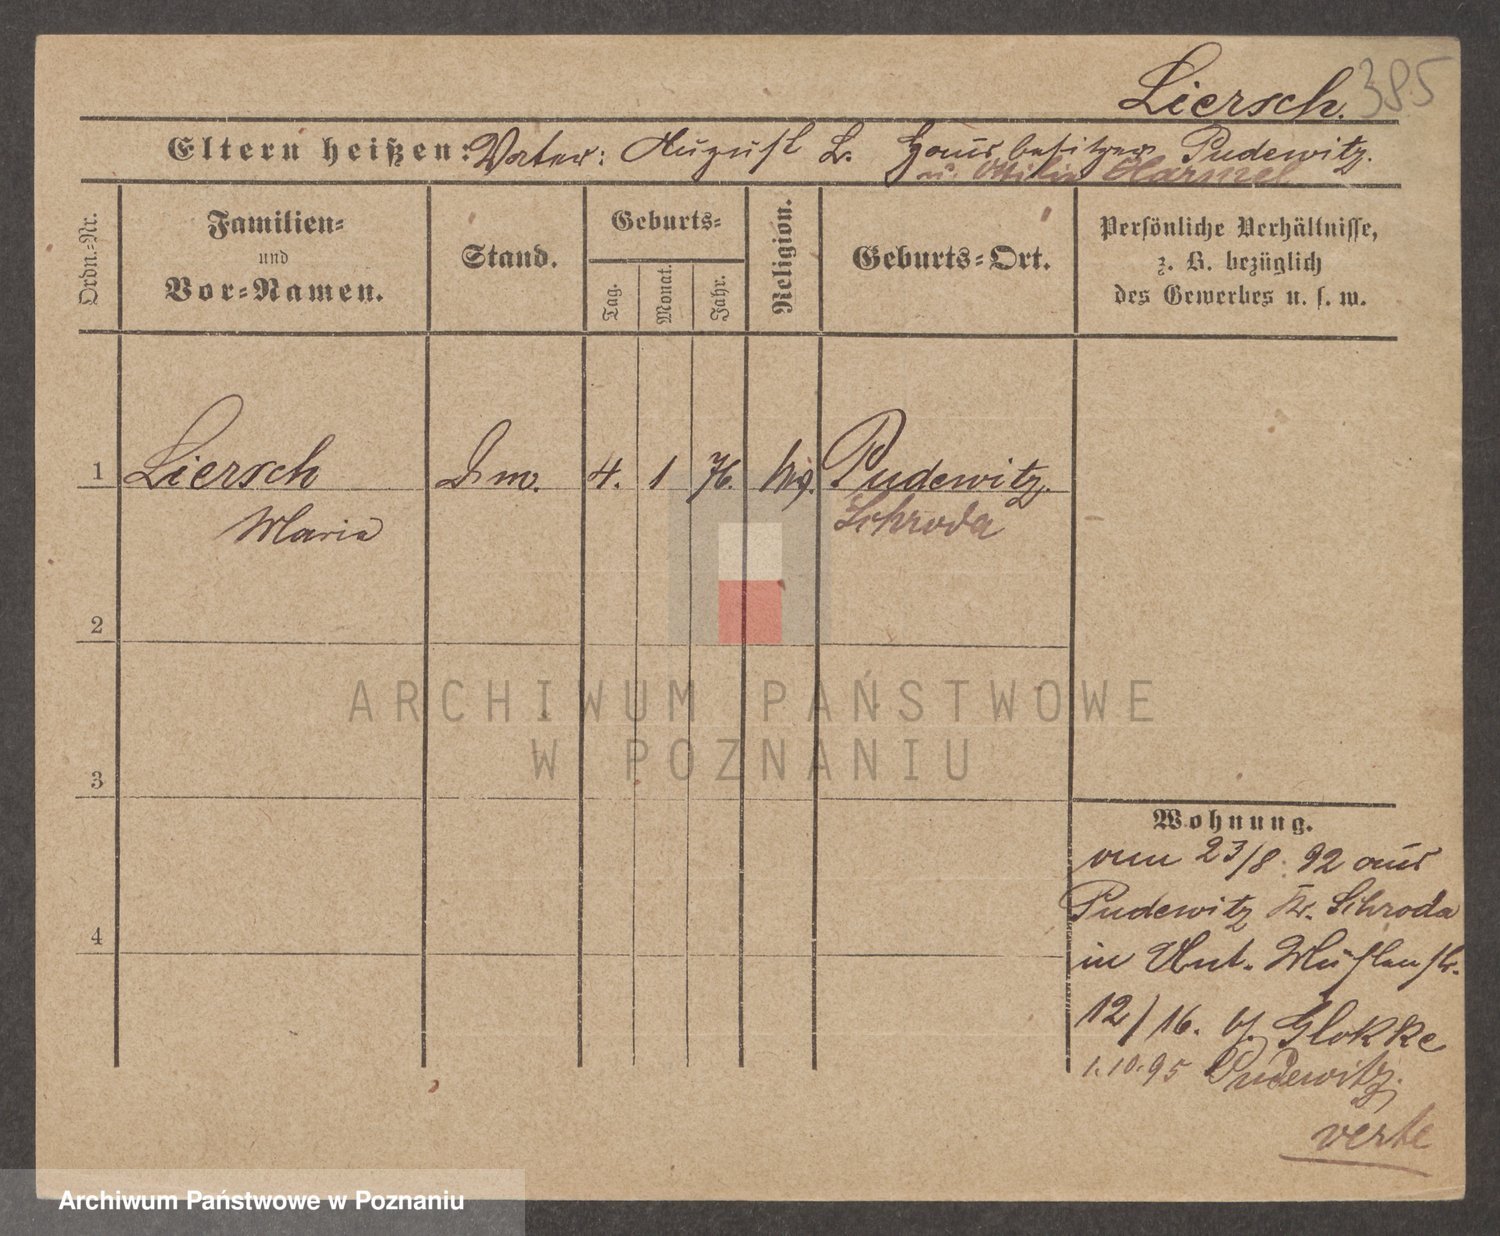 Liersch. 385
Eltern heißen: Vater: August L. Hausbesitzer Pudewitz.
u. Ottilie Harmel
Ordn.-Nr.
Familien-
und
Vor-Namen.
Stand.
Geburts-
Tag.
Monat.
Jahr.
Religion.
Geburts-Ort.
Persönliche Verhältnisse,
z. B. bezüglich
des Gewerbes u. s. w.
1 Liersch 4. 1 76. Pudewitz.
Maria Schroda
2
3
4
ARCHIWUM PAŃSTWOWE
W POZNANIU
Wohnung.
vom 23/8. 92 aus
Pudewitz Kr. Schroda
in Unt. Mühlenstr.
12/16. b. Glokke
1.10.95 Pudewitz.
verte
Archiwum Państwowe w Poznaniu